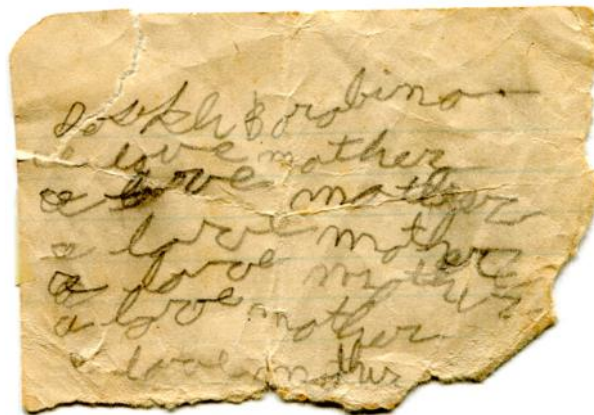 Joseph Borabino
I love mother
I love mother
I love mother
I love mother
I love mother
I love mother